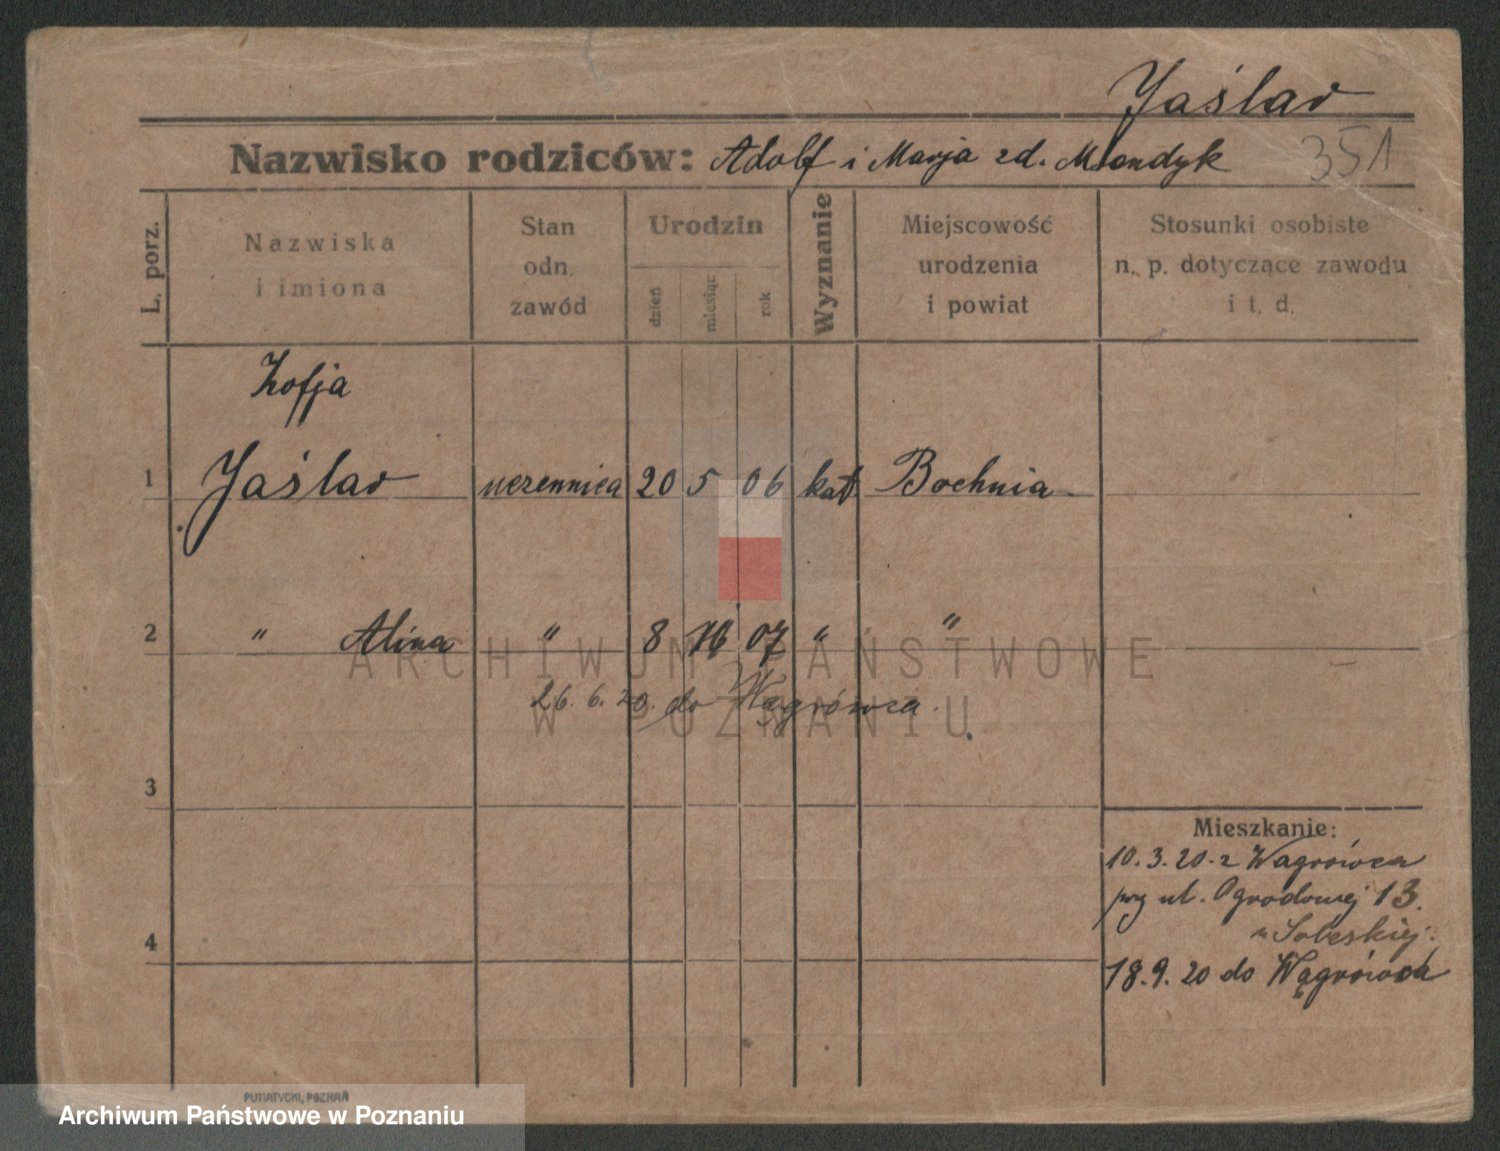 Jaślar
Nazwisko rodziców: Adolf i Marja zd. 351
L. porz.
Nazwiska
i imiona
Stan
odn.
zawód
Urodzin
dzień
miesiąc
rok
Wyznanie
Miejscowość
urodzenia
i powiat
Stosunki osobiste
n. p. dotyczące zawodu
i t. d.
Zofja
1 Jaślar uczennica 20 5 06 kat Bochnia
2 " Alina " 8 07 " "
ARCHIWUM PAŃSTWOWE
W POZNANIU
26. 6. 20. do Wągrówca.
3
Mieszkanie:
10. 3. 20. z Wągrówca
przy ul. Ogrodowej 13.
u Sobeskiej.
4
18. 9. 20 do Wągrówca
PUTIATYCKI, POZNAŃ
Archiwum Państwowe w Poznaniu